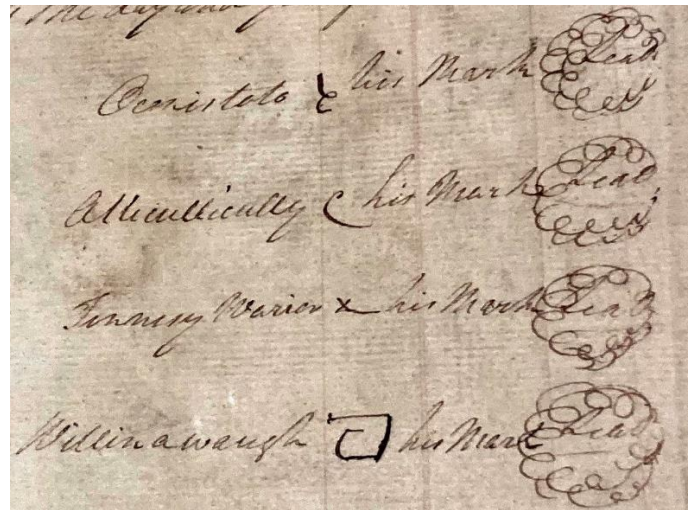 Oconistoto his Mark Seal
Attecullecully his Mark Seal
Tennesy Warier x his Mark Seal
Willinawaugh his Mark Seal